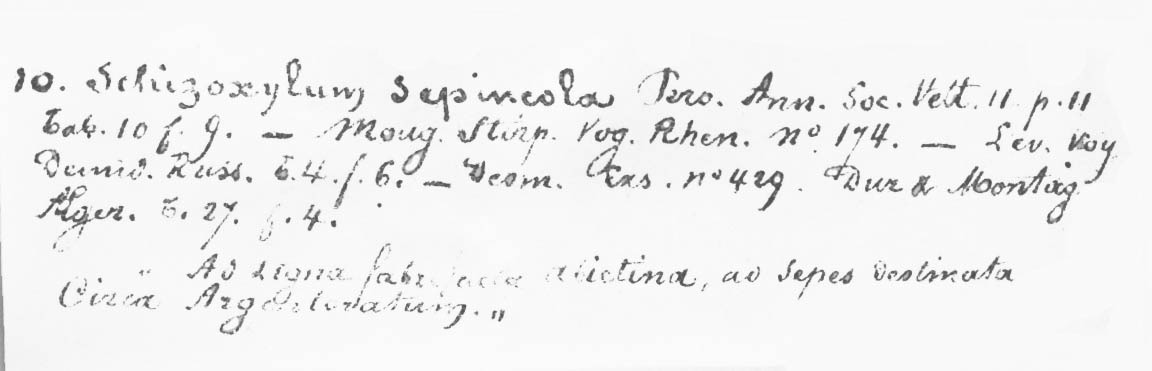 10. Schizoxylum Sepincola Pers. Ann. Soc. Vett. 11. p. 11
Tab. 10 f. 9. — Moug. Stirp. Vog. Rhen. nº 174. — Lev. Voy
Demid. Russ. t. 4. f. 6. — Desm. Exs. nº 429. Dur & Montag
Alger. t. 27. f. 4.
" Ad ligna fabrefacta abietina, ad Sepes destinata
Circa Argentoratum. "